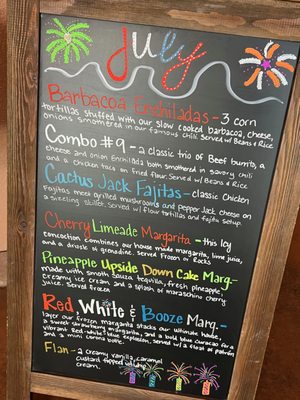 July
Barbacoa Enchiladas - 3 corn
tortillas stuffed with our slow cooked barbacoa, cheese,
onions smothered in our famous chili. Served w/ Beans & Rice
Combo #9 - a classic trio of Beef burrito, a
cheese and onion enchilada both smothered in savory chili
and a chicken taco on fried flour. Served w/ Beans & Rice
Cactus Jack Fajitas - classic Chicken
Fajitas meet grilled mushrooms and pepper Jack cheese on
a sizzling skillet. Served w/ flour tortillas and fajita setup.
Cherry Limeade Margarita - this icy
concoction combines our house made margarita, lime juice,
and a drizzle of grenadine. Served Frozen or Rocks
Pineapple Upside Down Cake Marg. -
made with smooth sauza tequila, fresh pineapple,
creamy ice cream and a splash of maraschino cherry
juice. Served frozen
Red White & Booze Marg. -
layer our frozen margarita stacks our ultimate house,
a sweet strawberry margarita, and a bold blue curacao for a
vibrant Red-White-Blue explosion, served w/ a float of patrón
and a mini corona bottle.
Flan - a creamy vanilla caramel
custard topped w/ whipped
cream.